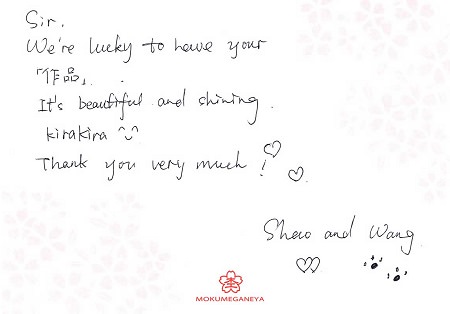 Sir.
We're lucky to have your
「作品」.
It's beautiful and shining.
kirakira
Thank you very much!
Shao and Wang
杢
MOKUMEGANEYA